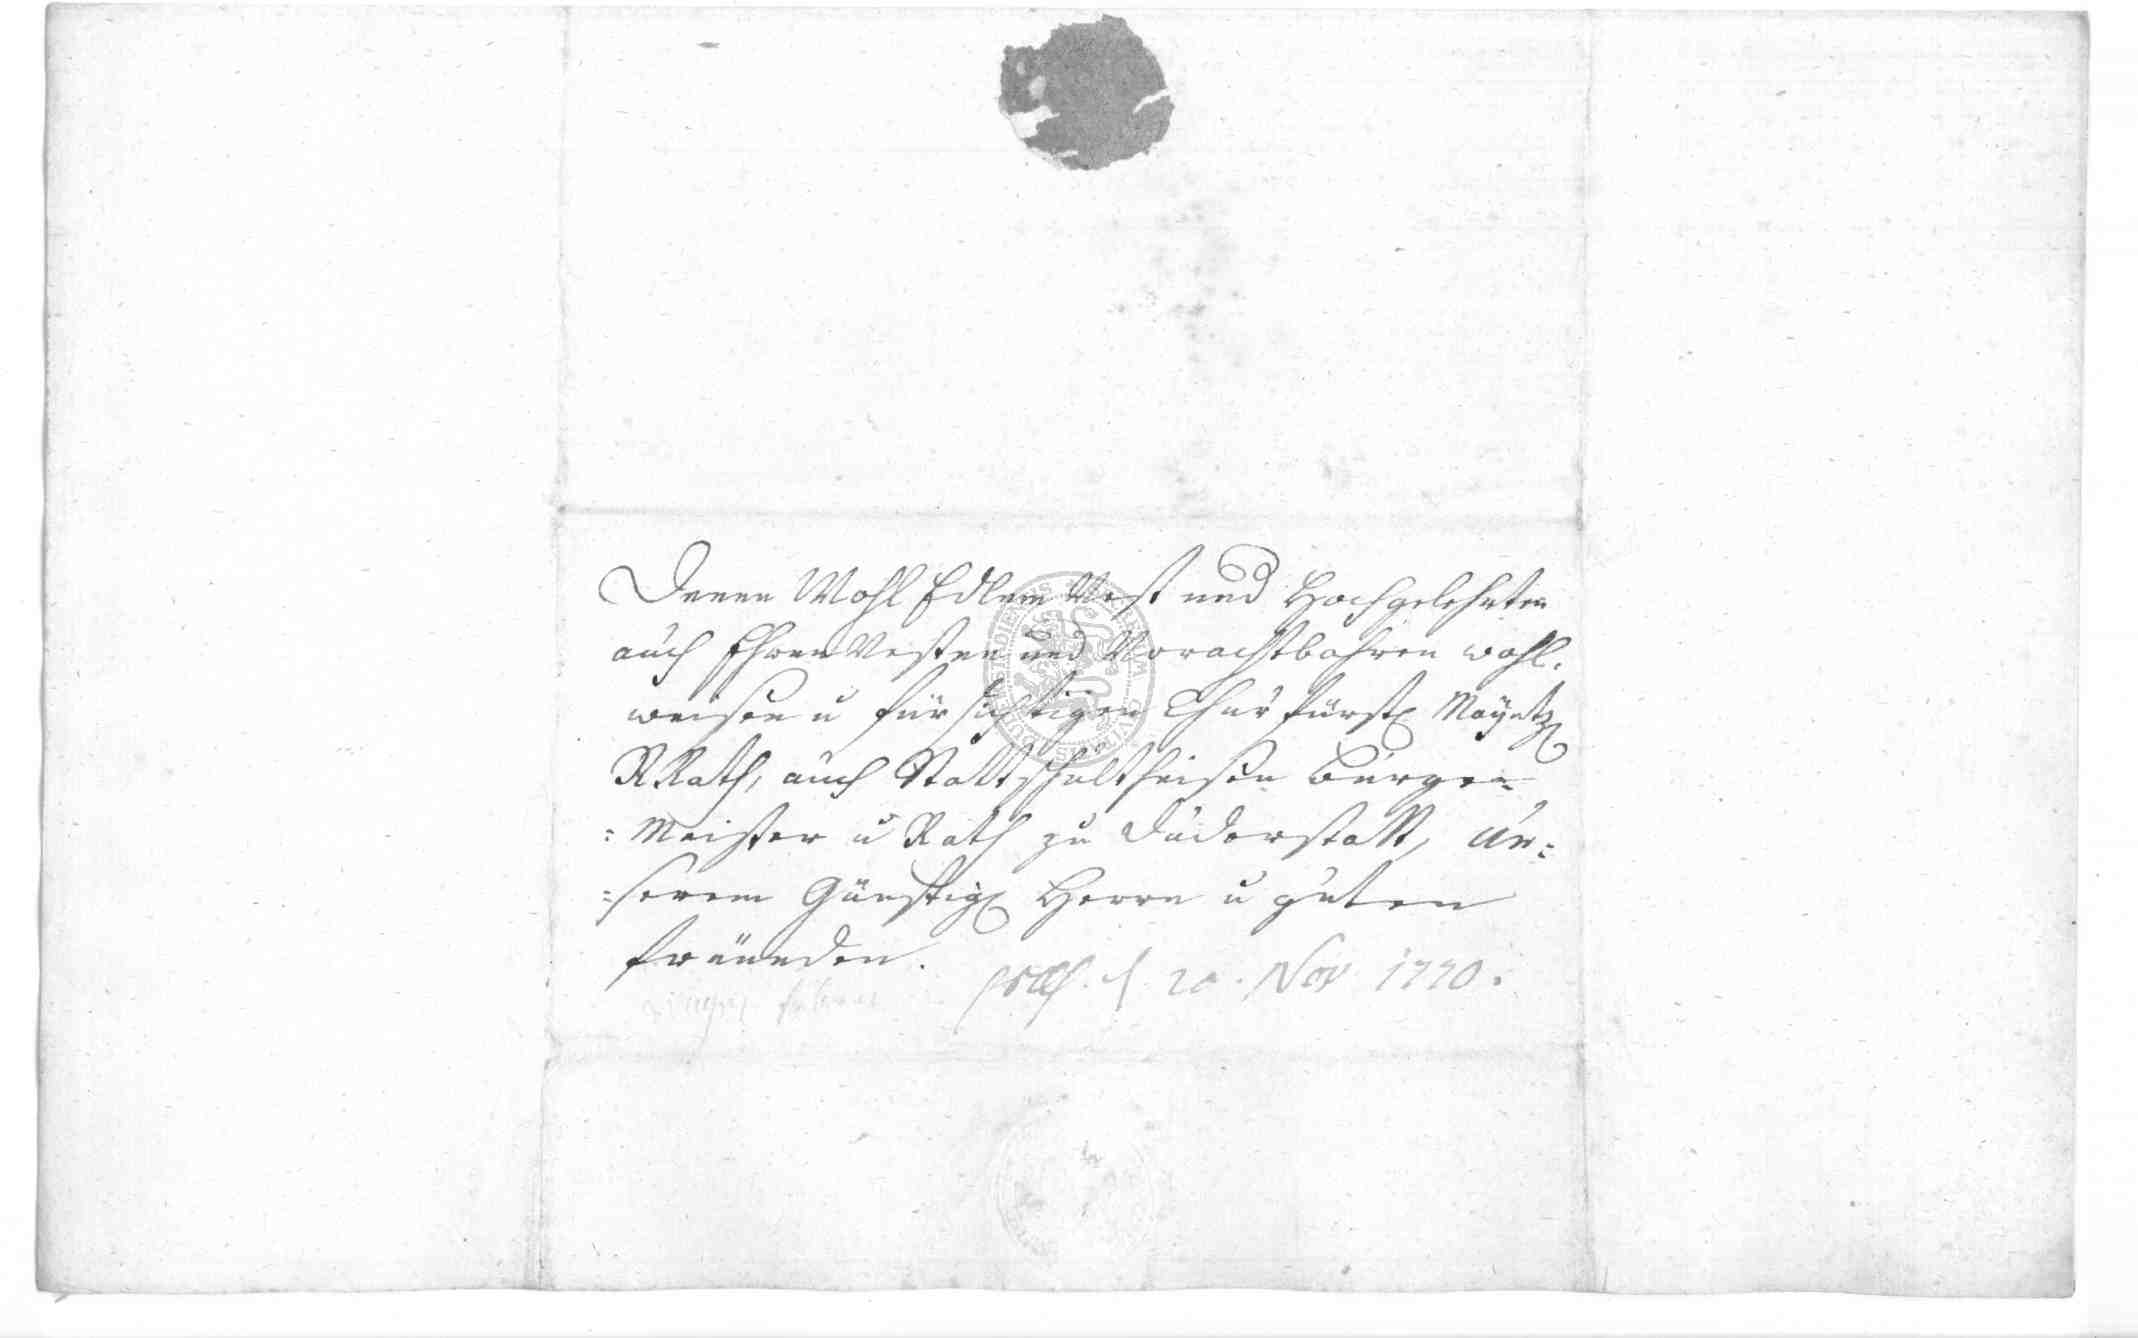 Denen Wohl Edlem Vest und Hochgelehrten
auch Ehren Vesten und Vorachtbahren wohl-
weisen u fürsichtigen Churfürstl Mayntz
RRath, auch Stattschultheisen Bürger
=Meister u Rath zu Düderstatt, Un=
=serem Günstig Herrn u guten
fräunden.
d. 20. Nov 1770.